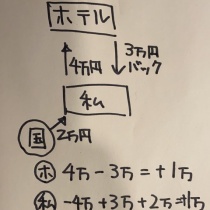 ホテル
3万円
バック
4万円
私
国 2万円
ホ 4万-3万=+1万
私 -4万+3万+2万=+1万